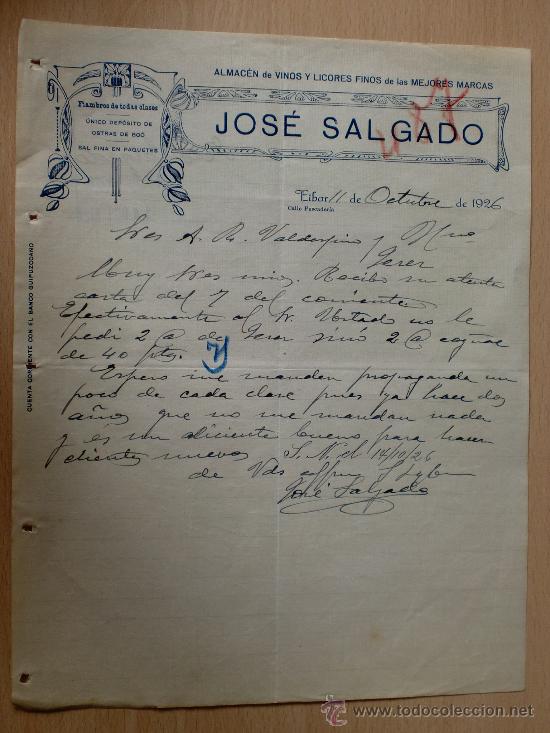 ALMACÉN de VINOS Y LICORES FINOS de las MEJORES MARCAS
JOSÉ SALGADO
Fiambres de todas clases
ÚNICO DEPÓSITO DE
OSTRAS DE BOÓ
SAL FINA EN PAQUETES
Eibar 11 de Octubre de 1926
Calle Pescadería
CUENTA CORRIENTE CON EL BANCO GUIPUZCOANO
Sres A. R. Valdespino y Hno
Jerez
Muy Sres mios. Recibo su atenta
carta del 7 del corriente
Efectivamente al Sr. Hurtado no le
pedi 2 @ de Jerez sinó 2 @ cognac
de 40 ptas.
Espero me manden propaganda un
poco de cada clase pues ya hace dos
años que no me mandan nada
y és un aliciente bueno para hacer
clientes nuevos
14/10/26
de Vds
José Salgado
todocoleccion.net